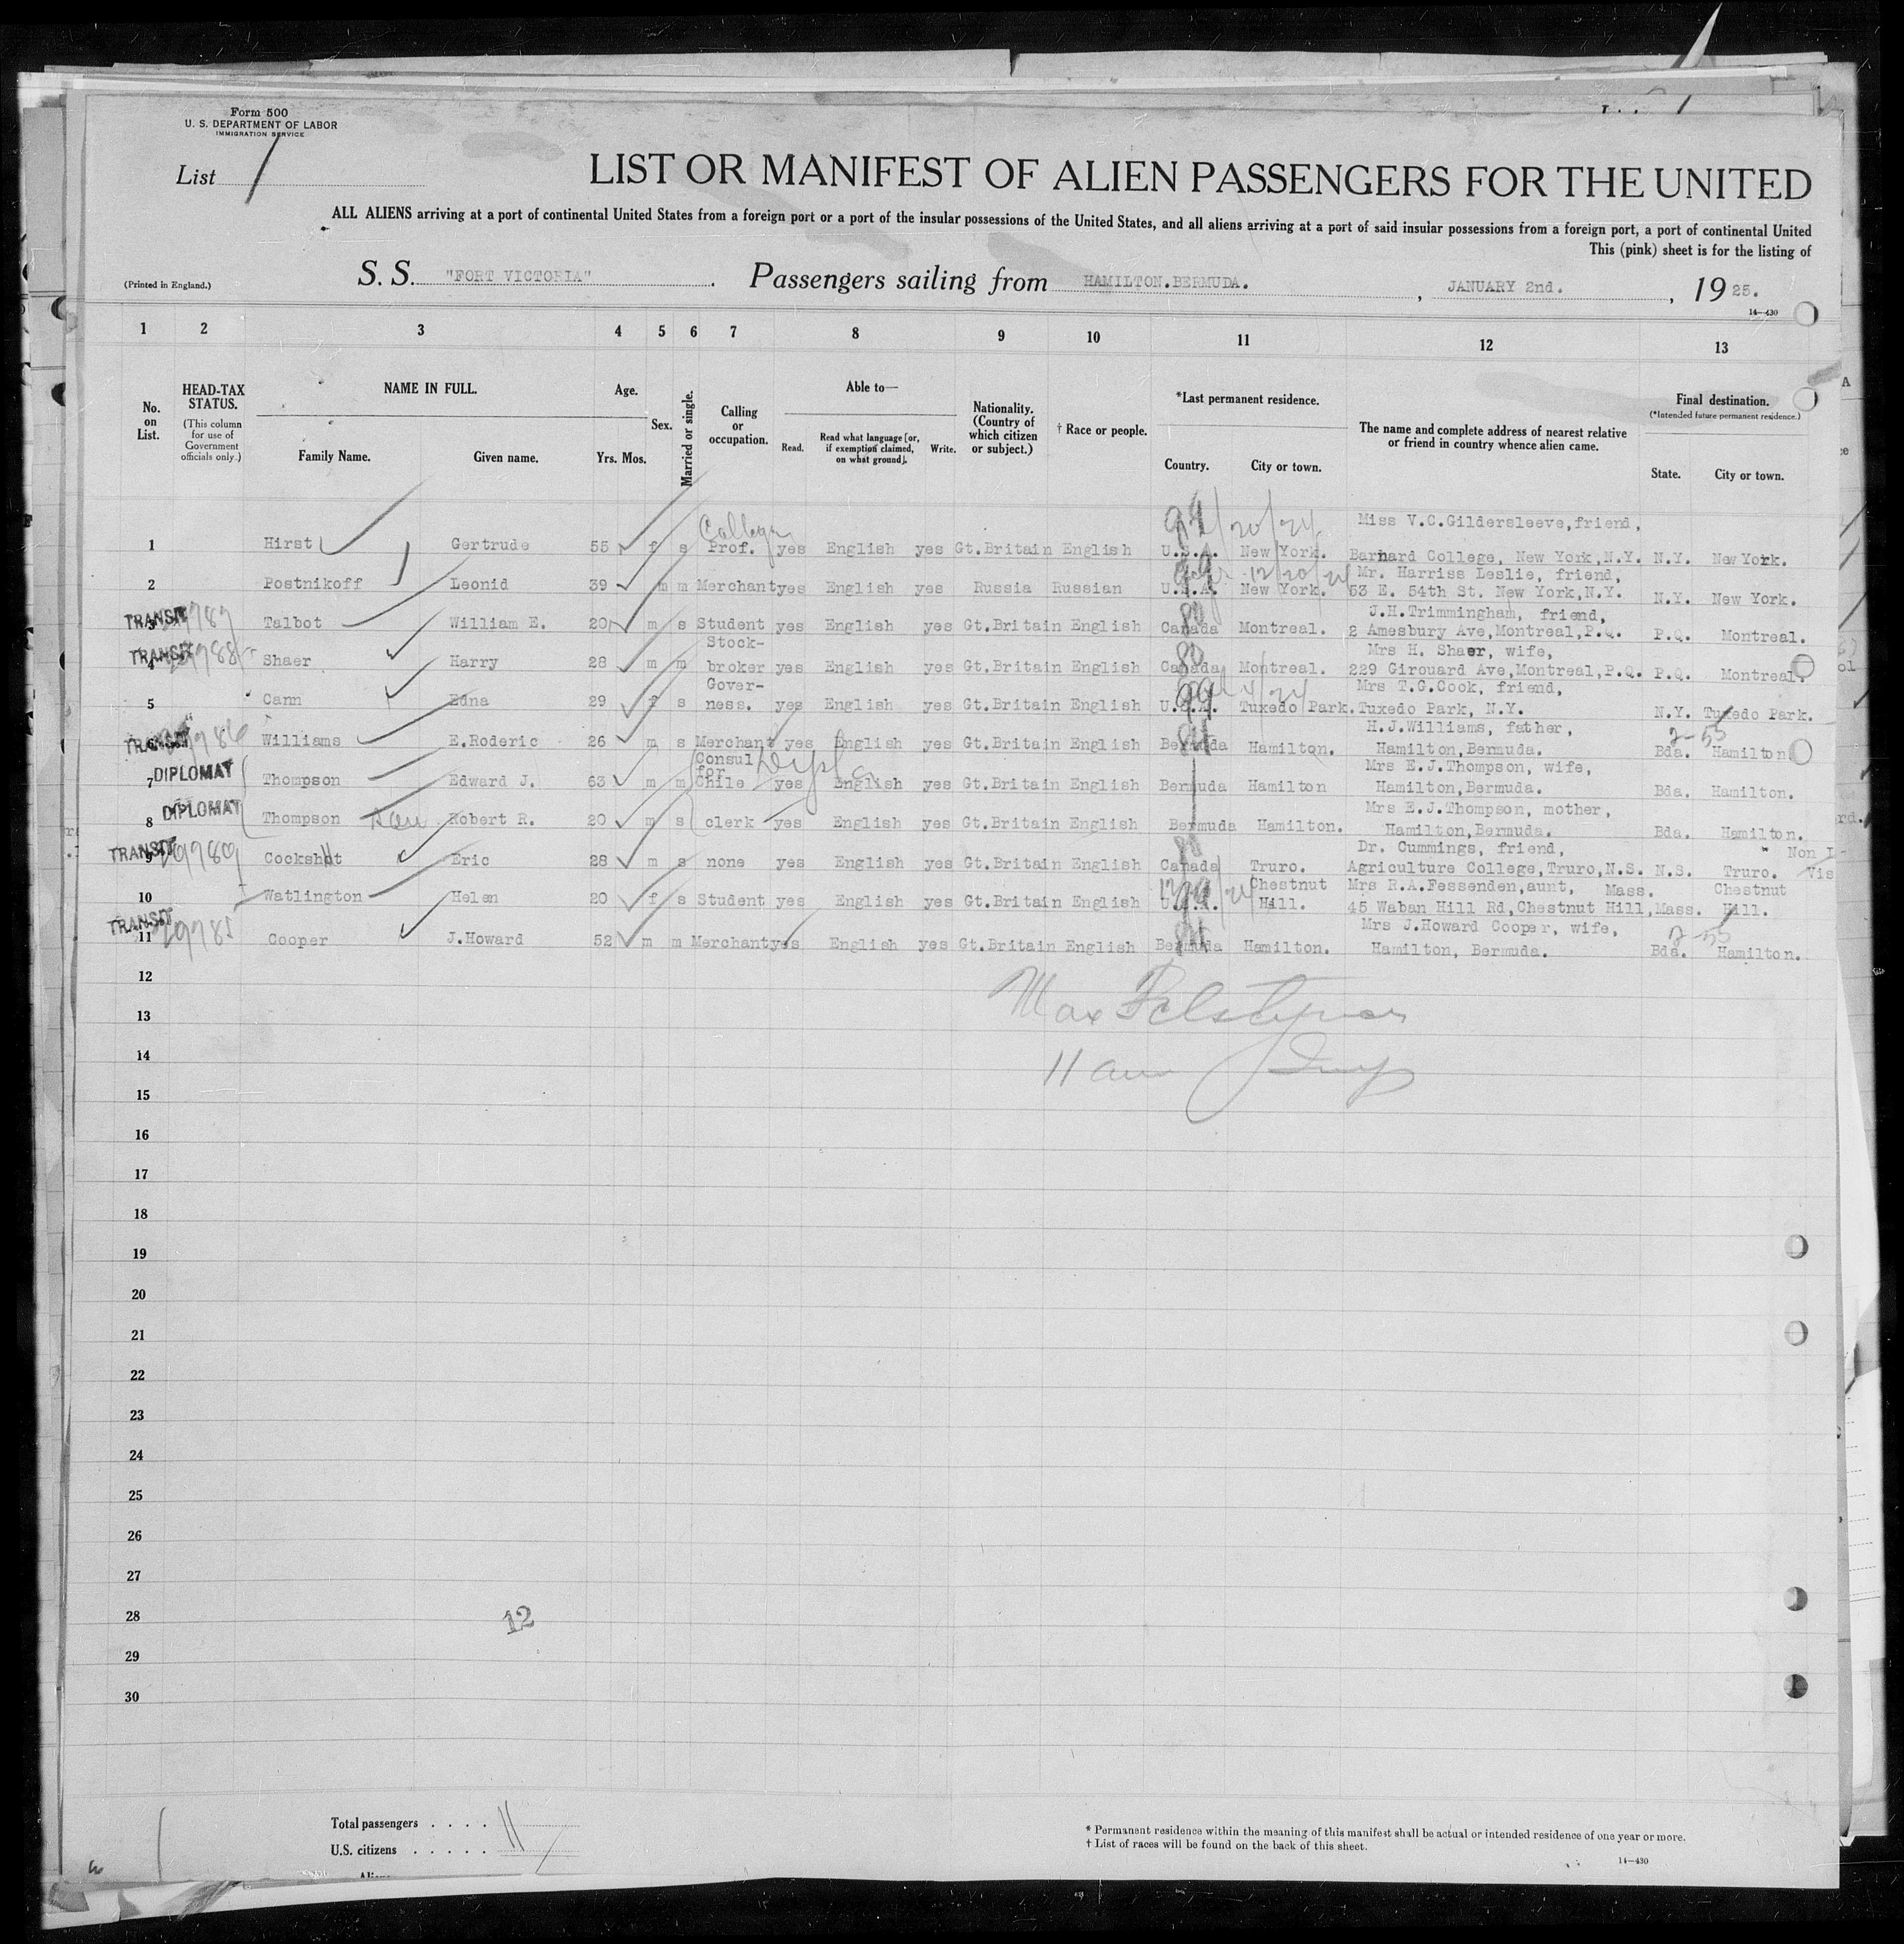 Form 500
U. S. DEPARTMENT OF LABOR
IMMIGRATION SERVICE
List 1
LIST OR MANIFEST OF ALIEN PASSENGERS FOR THE UNITED
ALL ALIENS arriving at a port of continental United States from a foreign port or a port of the insular possessions of the United States, and all aliens arriving at a port of said insular possessions from a foreign port, a port of continental United
This (pink) sheet is for the listing of
(Printed in England.)
S. S. "FORT VICTORIA". Passengers sailing from HAMILTON.BERMUDA. , JANUARY 2nd. , 1925.
14—430
1 2 3 4 5 6 7 8 9 10 11 12 13
No. on List.
HEAD-TAX STATUS.
(This column for use of Government officials only.)
NAME IN FULL.
Family Name. Given name.
Age.
Yrs. Mos.
Sex.
Married or single.
Calling or occupation.
Able to—
Read. Read what language [or, if exemption claimed, on what ground]. Write.
Nationality. (Country of which citizen or subject.)
† Race or people.
*Last permanent residence.
Country. City or town.
The name and complete address of nearest relative or friend in country whence alien came.
Final destination.
(*Intended future permanent residence.)
State. City or town.
College 12/20/24 Miss V.C.Gildersleeve,friend,
1 Hirst Gertrude 55 f s Prof. yes English yes Gt.Britain English U.S.A. New York. Barnard College, New York,N.Y. N.Y. New York.
12/20/24 Mr. Harriss Leslie, friend,
2 Postnikoff Leonid 39 m m Merchant yes English yes Russia Russian U.S.A. New York. 53 E. 54th St. New York,N.Y. N.Y. New York.
J.H.Trimmingham, friend,
TRANSIT 3 Talbot William E. 20 m s Student yes English yes Gt.Britain English Canada Montreal. 2 Amesbury Ave,Montreal,P.Q. P.Q. Montreal.
Stock- Mrs H. Shaer, wife,
TRANSIT 4 Shaer Harry 28 m m broker yes English yes Gt.Britain English Canada Montreal. 229 Girouard Ave,Montreal,P.Q. P.Q. Montreal.
Gover- Mrs T.G.Cook, friend,
5 Cann Edna 29 f s ness. yes English yes Gt.Britain English U.S.A. Tuxedo Park. Tuxedo Park, N.Y. N.Y. Tuxedo Park.
H.J.Williams, father,
TRANSIT 29986 6 Williams E.Roderic 26 m s Merchant yes English yes Gt.Britain English Bermuda Hamilton. Hamilton,Bermuda. Bda. Hamilton
Consul for Mrs E.J.Thompson, wife,
7 DIPLOMAT Thompson Edward J. 63 m m Chile yes English yes Gt.Britain English Bermuda Hamilton Hamilton,Bermuda. Bda. Hamilton.
Mrs E.J.Thompson, mother,
8 DIPLOMAT Thompson Son Robert R. 20 m s clerk yes English yes Gt.Britain English Bermuda Hamilton. Hamilton,Bermuda. Bda. Hamilton.
Dr. Cummings, friend, Non I-
TRANSIT 29989 9 Cockshot Eric 28 m s none yes English yes Gt.Britain English Canada Truro. Agriculture College,Truro,N.S. N.S. Truro. Vis
Chestnut Mrs R.A.Fessenden,aunt, Mass. Chestnut
10 Watlington Helen 20 f s Student yes English yes Gt.Britain English U.S.A. Hill. 45 Waban Hill Rd,Chestnut Hill,Mass. Hill.
Mrs J.Howard Cooper, wife,
TRANSIT 29985 11 Cooper J.Howard 52 m m Merchant yes English yes Gt.Britain English Bermuda Hamilton. Hamilton, Bermuda. Bda. Hamilton.
12
13
Max
14
11 am Insp
15
16
17
18
19
20
21
22
23
24
25
26
27
28
12
29
30
Total passengers . . . . 11
U.S. citizens . . . . .
* Permanent residence within the meaning of this manifest shall be actual or intended residence of one year or more.
† List of races will be found on the back of this sheet.
14—430